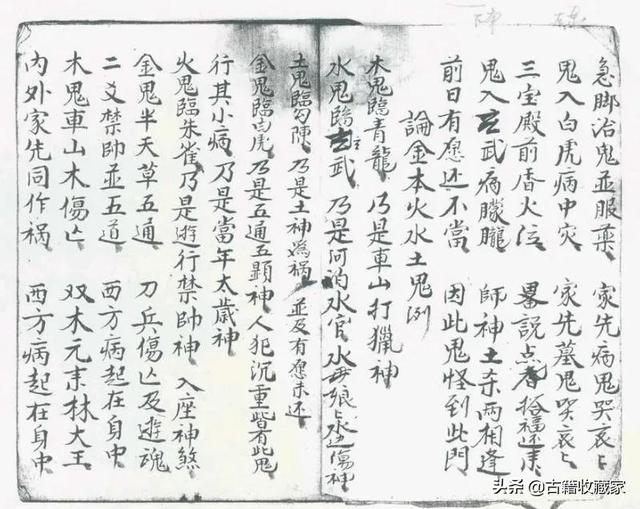 急脚治鬼並服藥 家先病鬼哭哀ヒ
鬼入白虎病中灾 家先墓鬼哭哀ヒ
三宝殿前香火位 畧説点香
鬼入玄武病朦朧 師神土杀两相逢
前日有愿还不當 因此鬼怪到此門
論金木火水土鬼例
木鬼臨青龍 乃是車山打獵神
水鬼臨玄武 乃是河泊水官水
土鬼臨勾陳 乃是土神為祸 並及有愿未还
金鬼臨白虎 乃是五通五顯神 人犯沉重皆有此鬼
行其小病乃是當年太歲神
火鬼臨朱雀乃是遊行禁帥神 入座神煞
金鬼半天草五通 刀兵傷亡及遊魂
二爻禁帥並五道 西方病起在身中
木鬼車山木傷亡 双木元来林大王
内外家先同作祸 西方病起在身中
头条 @古籍收藏家